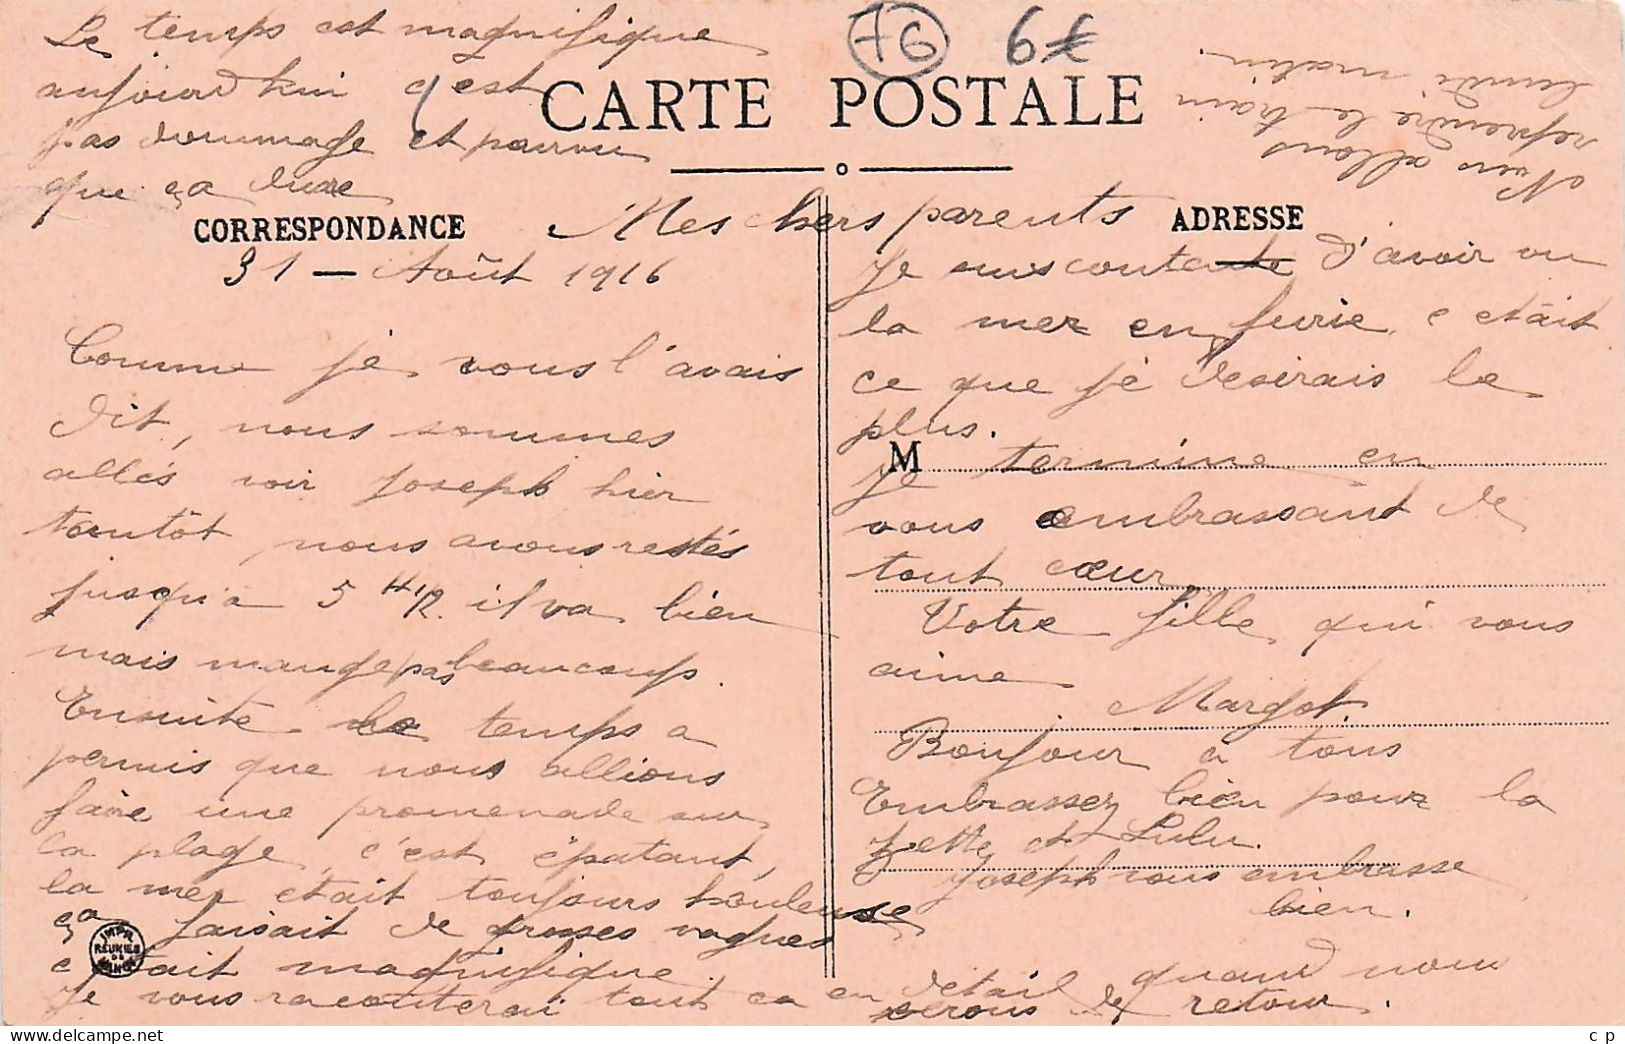 Le temps est magnifique
aujourd'hui c'est
pas dommage et pourvu
que ça dure
76
6€
Nous allons
reprendre le train
lundi matin.
CARTE POSTALE
CORRESPONDANCE
ADRESSE
31 — Août 1916
Mes chers parents
Comme je vous l'avais
dit, nous sommes
allés voir Joseph hier
tantôt, nous avons restés
jusqu'a 5 H 1/2. il va bien
mais mange pas beaucoup.
Ensuite le temps a
permis que nous allions
faire une promenade sur
la plage, c'est épatant,
la mer était toujours houleuse
ça faisait de grosses vagues
c'était magnifique.
Je vous raconterai tout ça en détail quand nous
serons de retour.
Je suis contente d'avoir vu
la mer en furie, c était
ce que je désirais le
plus.
M
Je termine en
vous embrassant de
tout cœur
Votre fille qui vous
aime
Margot.
Bonjour à tous
Embrassez bien pour la
Zette et Lulu.
Joseph vous embrasse
bien.
IMPR.
REUNIES
DE
NANCY
c p